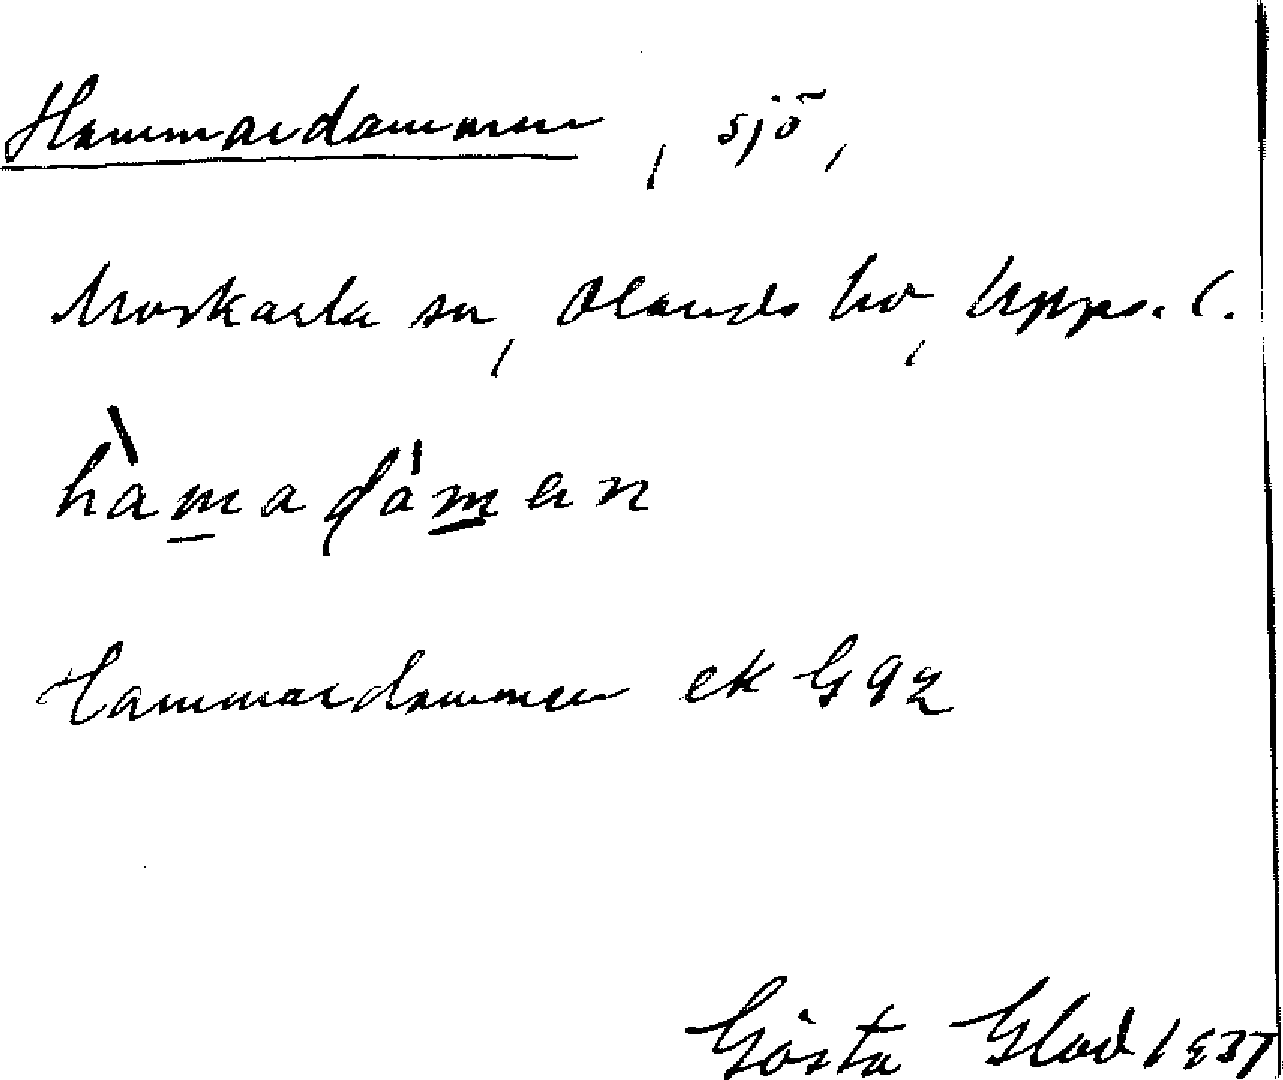 Hammardammen, sjö,
Morkarla sn, Olands hd, Upps. l.
hàmadáman
Hammardammen ek G 92
Gösta Glad 1937